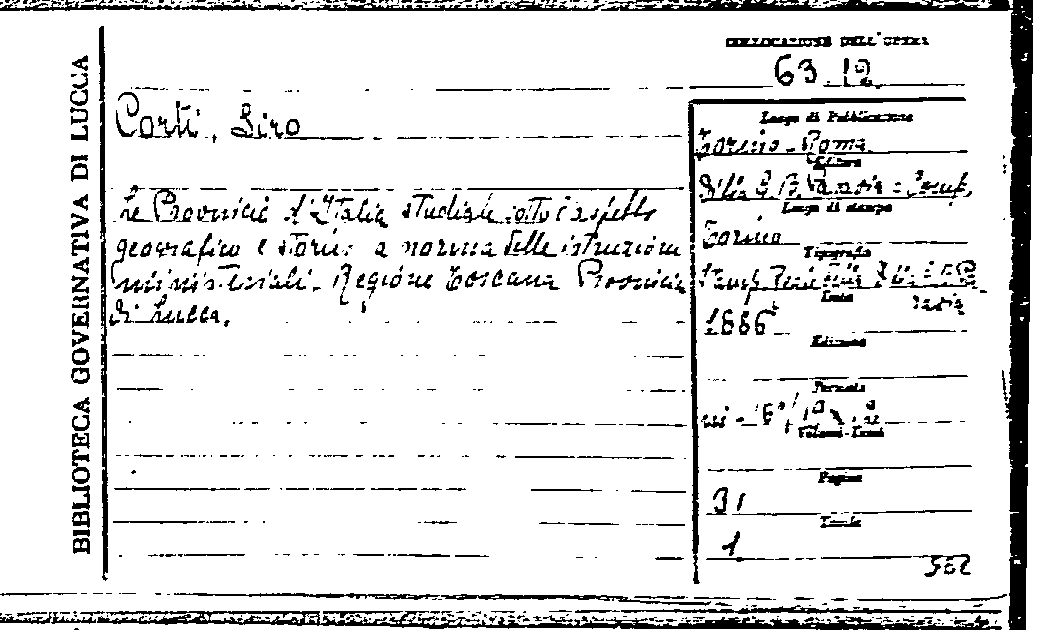 BIBLIOTECA GOVERNATIVA DI LUCCA
COLLOCAZIONE DELL'OPERA
63 12
Corti, Siro
Le Provincie d'Italia studiate sotto l'aspetto
geografico e storico a norma delle istruzioni
ministeriali. Regione Toscana Provincia
di Lucca.
Luogo di Pubblicazione
Torino - Roma
Editore
Luogo di stampa
Torino
Tipografia
Stamp.
Data
1886
Edizione
Formato
in - 16°
Volumi-Tomi
Pagine
31
Tavole
1
562